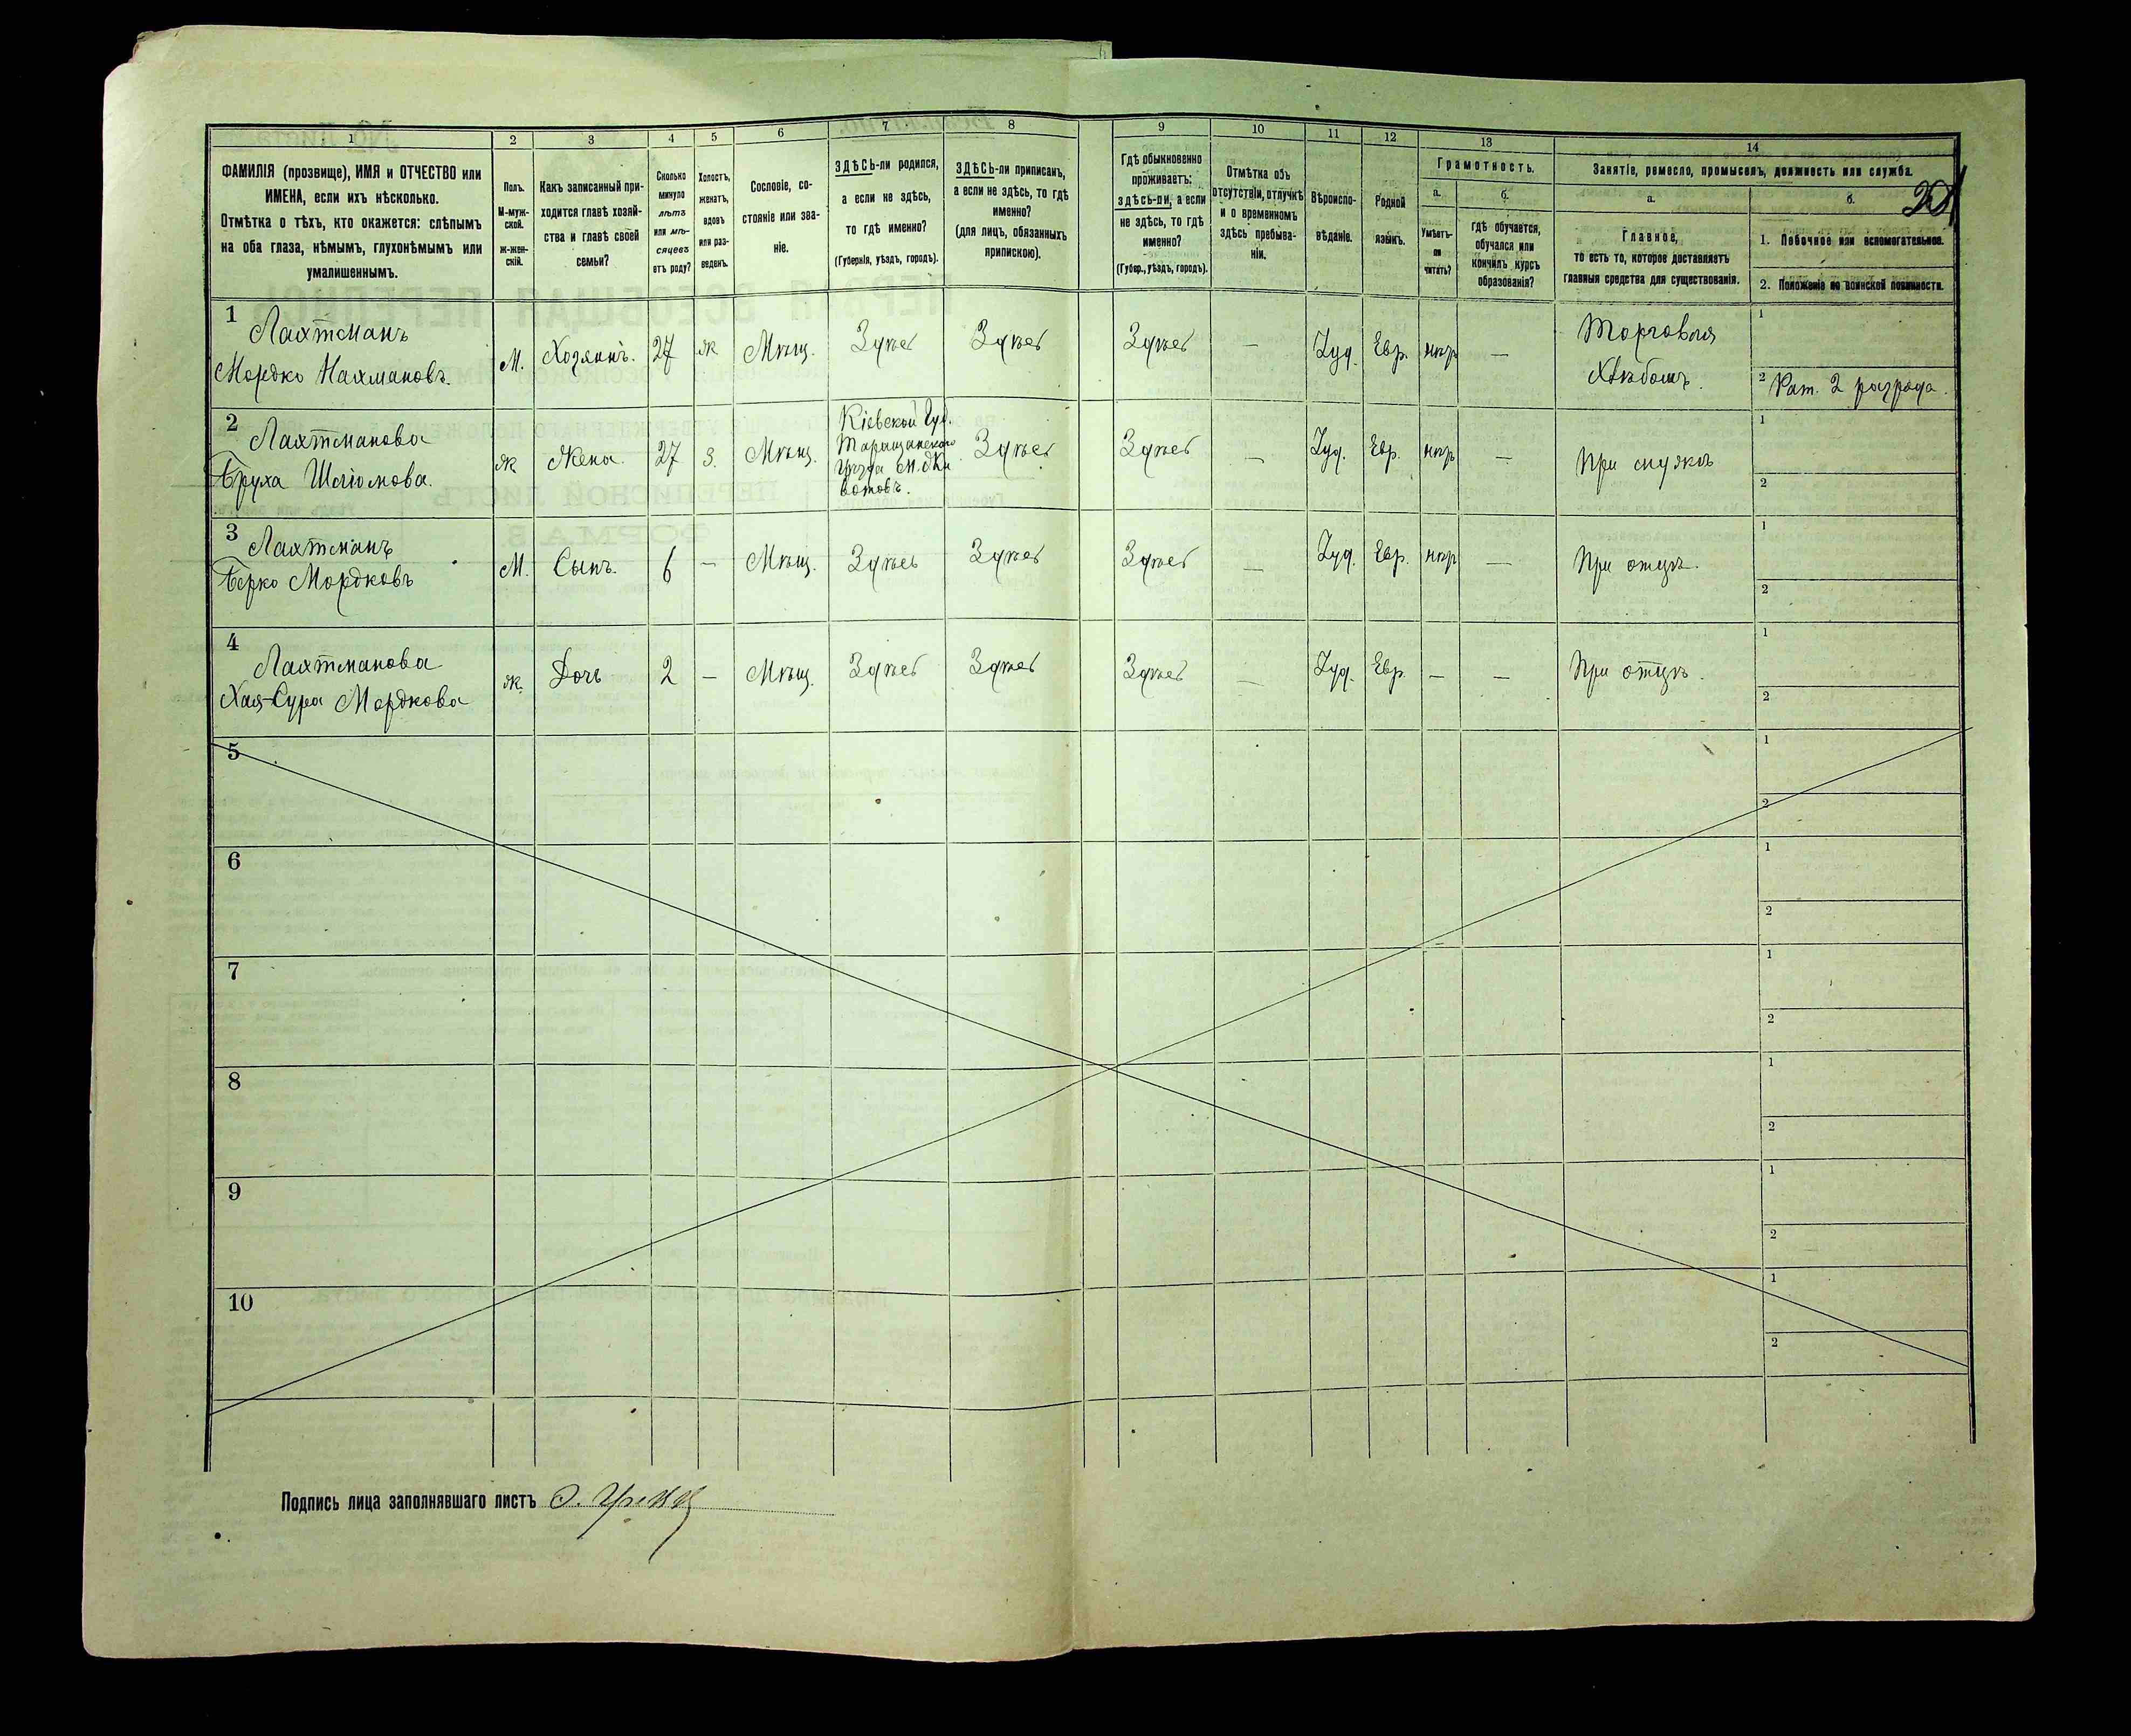 1 2 3 4 5 6 7 8 9 10 11 12 13 14
ФАМИЛІЯ (прозвище), ИМЯ и ОТЧЕСТВО или
ИМЕНА, если ихъ нѣсколько.
Отмѣтка о тѣхъ, кто окажется: слѣпымъ
на оба глаза, нѣмымъ, глухонѣмымъ или
умалишеннымъ.
Полъ.
М-муж-
ской.
ж-жен-
скій.
Какъ записанный при-
ходится главѣ хозяй-
ства и главѣ своей
семьи?
Сколько
минуло
лѣтъ
или мѣ-
сяцевъ
отъ роду?
Холостъ,
женатъ,
вдовъ
или раз-
веденъ.
Сословіе, со-
стояніе или зва-
ніе.
ЗДѢСЬ-ли родился,
а если не здѣсь,
то гдѣ именно?
(Губернія, уѣздъ, городъ).
ЗДѢСЬ-ли приписанъ,
а если не здѣсь, то гдѣ
именно?
(для лицъ, обязанныхъ
припискою).
Гдѣ обыкновенно
проживаетъ:
здѣсь-ли, а если
не здѣсь, то гдѣ
именно?
(Губер., уѣздъ, городъ).
Отмѣтка объ
отсутствіи, отлучкѣ
и о временномъ
здѣсь пребыва-
ніи.
Вѣроиспо-
вѣданіе.
Родной
языкъ.
Грамотность.
а.
Умѣетъ-
ли
читать?
б.
гдѣ обучается,
обучался или
кончилъ курсъ
образованія?
Занятіе, ремесло, промыселъ, должность или служба.
а.
Главное,
то есть то, которое доставляетъ
главныя средства для существованія.
б.
1. Побочное или вспомогательное.
2. Положеніе по воинской повинности.
1
Лахтманъ
Мордко Нахмановъ.
М.
Хозяинъ.
27
ж
Мѣщ.
Здѣсь
Здѣсь
Здѣсь
—
Іуд.
Евр.
—
Торговля
Хлѣбомъ.
1
2 Рат. 2 разряда.
2
Лахтманова
Бруха Шліомова.
ж
Жена.
27
З.
Мѣщ.
Кіевской Губ.
Таращанского
Уѣзда м. Жи
вотовъ.
Здѣсь
Здѣсь
—
Іуд.
Евр.
—
При мужѣ
1
2
3
Лахтманъ
Берко Мордковъ
М.
Сынъ.
6
—
Мѣщ.
Здѣсь
Здѣсь
Здѣсь
—
Іуд.
Евр.
—
При отцѣ.
1
2
4
Лахтманова
Хая-Сура Мордкова
ж.
Дочь
2
—
Мѣщ.
Здѣсь
Здѣсь
Здѣсь
—
Іуд.
Евр.
—
—
При отцѣ.
1
2
5
1
2
6
1
2
7
1
2
8
1
2
9
1
2
10
1
2
Подпись лица заполнявшаго листъ